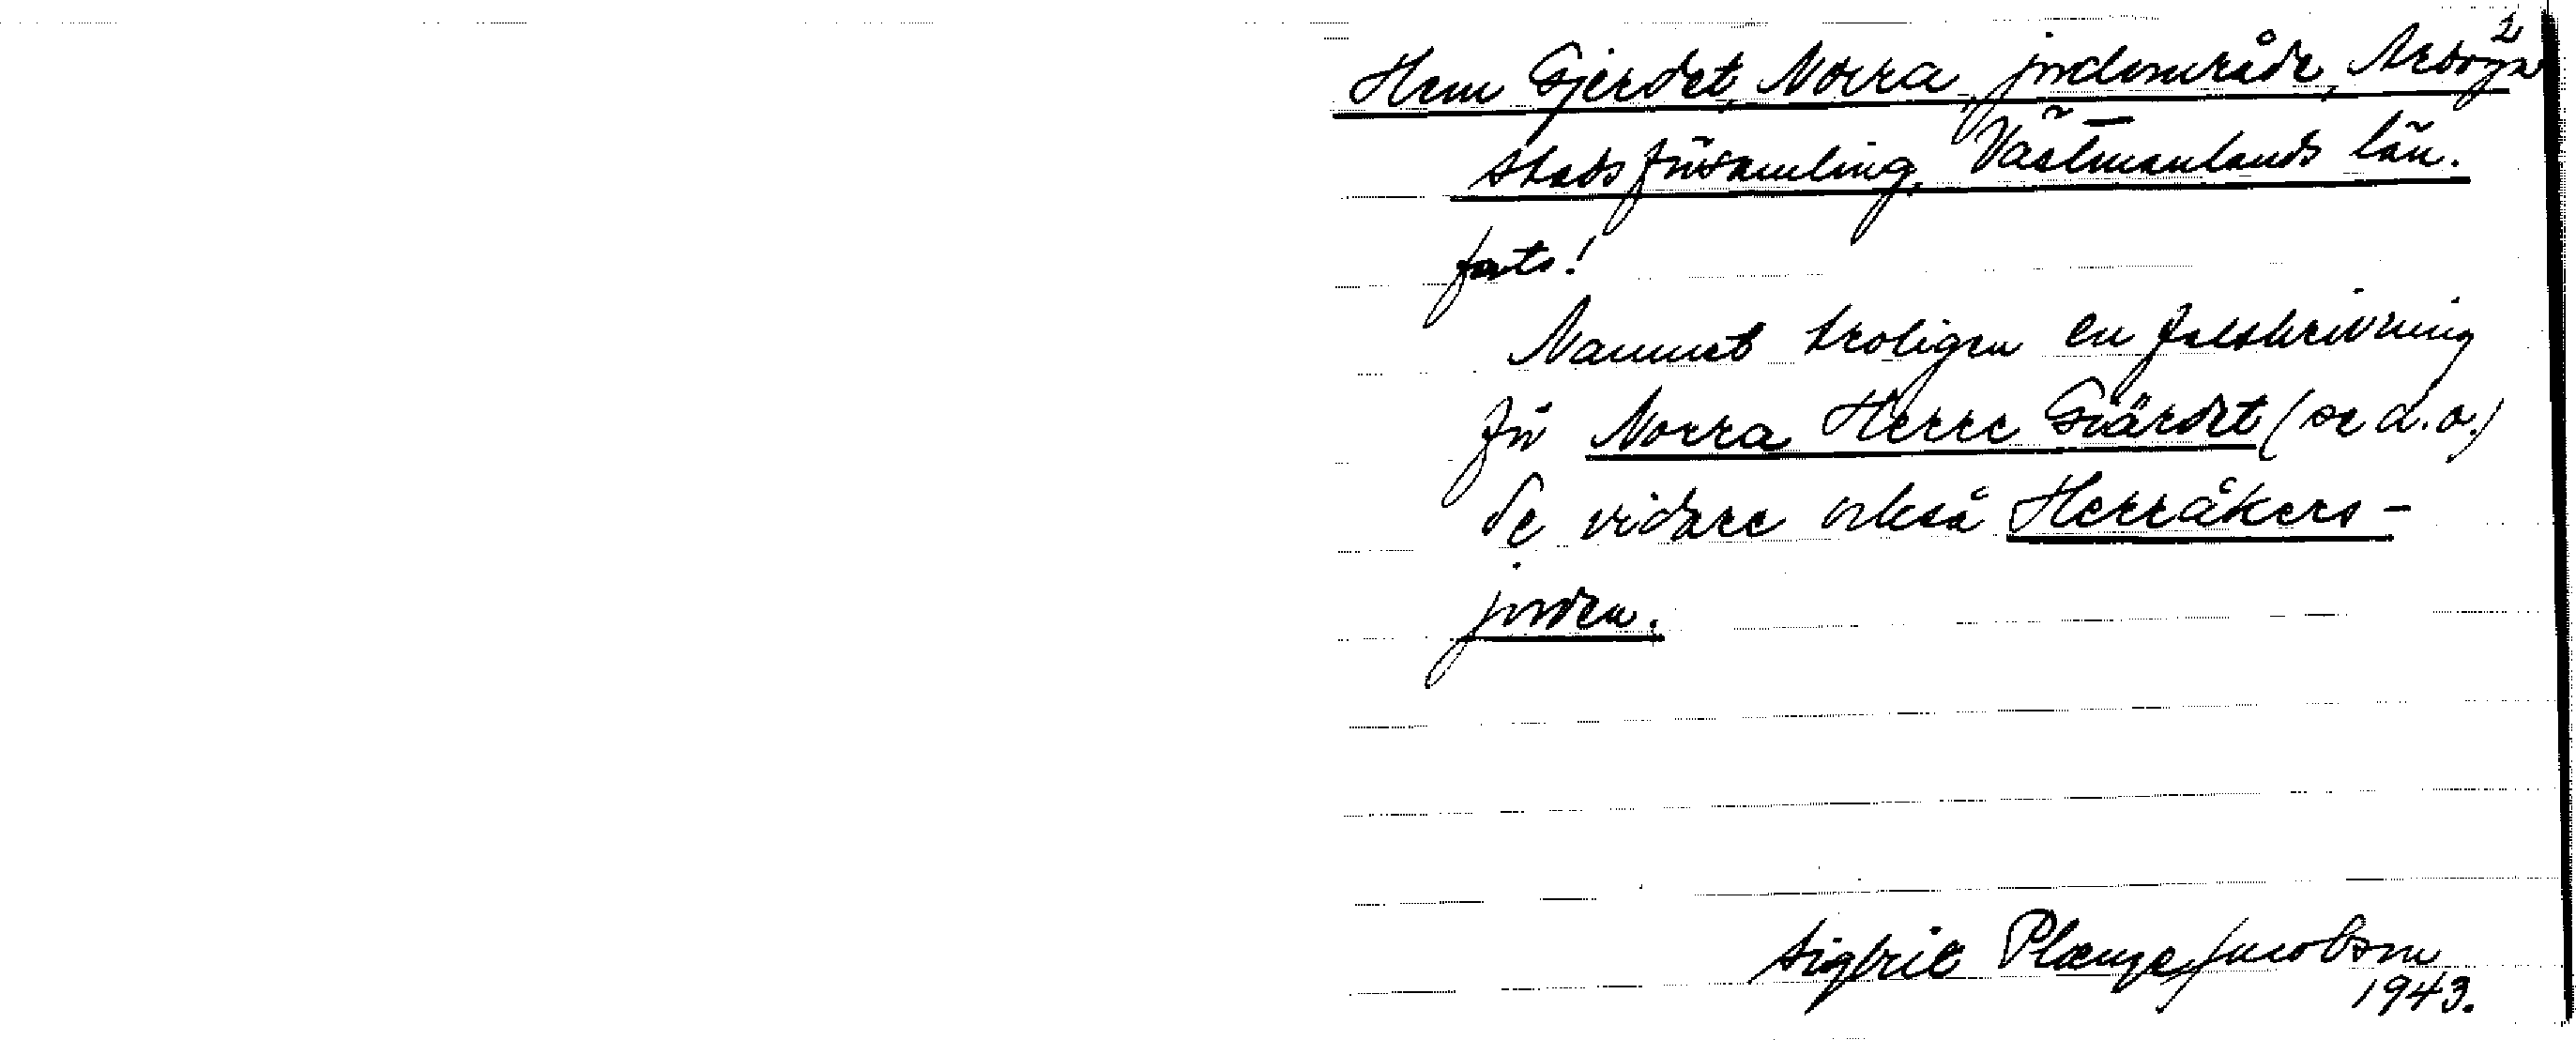 2
Hem Gjerdet, Norra, jordområde, Arboga
stadsförsamling, Västmanlands län.
forts!
Namnet troligen en felskrivning
för Norra Herre Giärdet (se d.o.)
Se vidare också Herråkers-
jorden.
Sigfrit Plange Jacobson
1943.